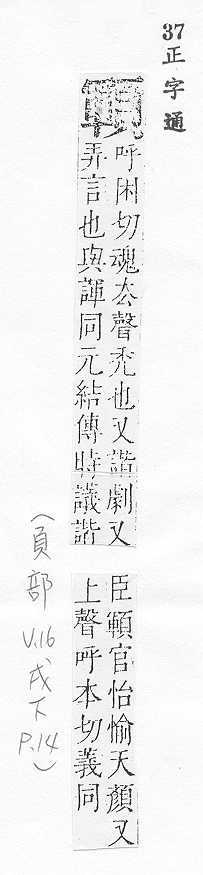 37 正字通
顐
呼困切魂厺聲禿也又諧劇又
弄言也與諢同元結傳時議諧
臣顐官怡愉天顏又
上聲呼本切義同
(員部 V.16 戌下 P.14)